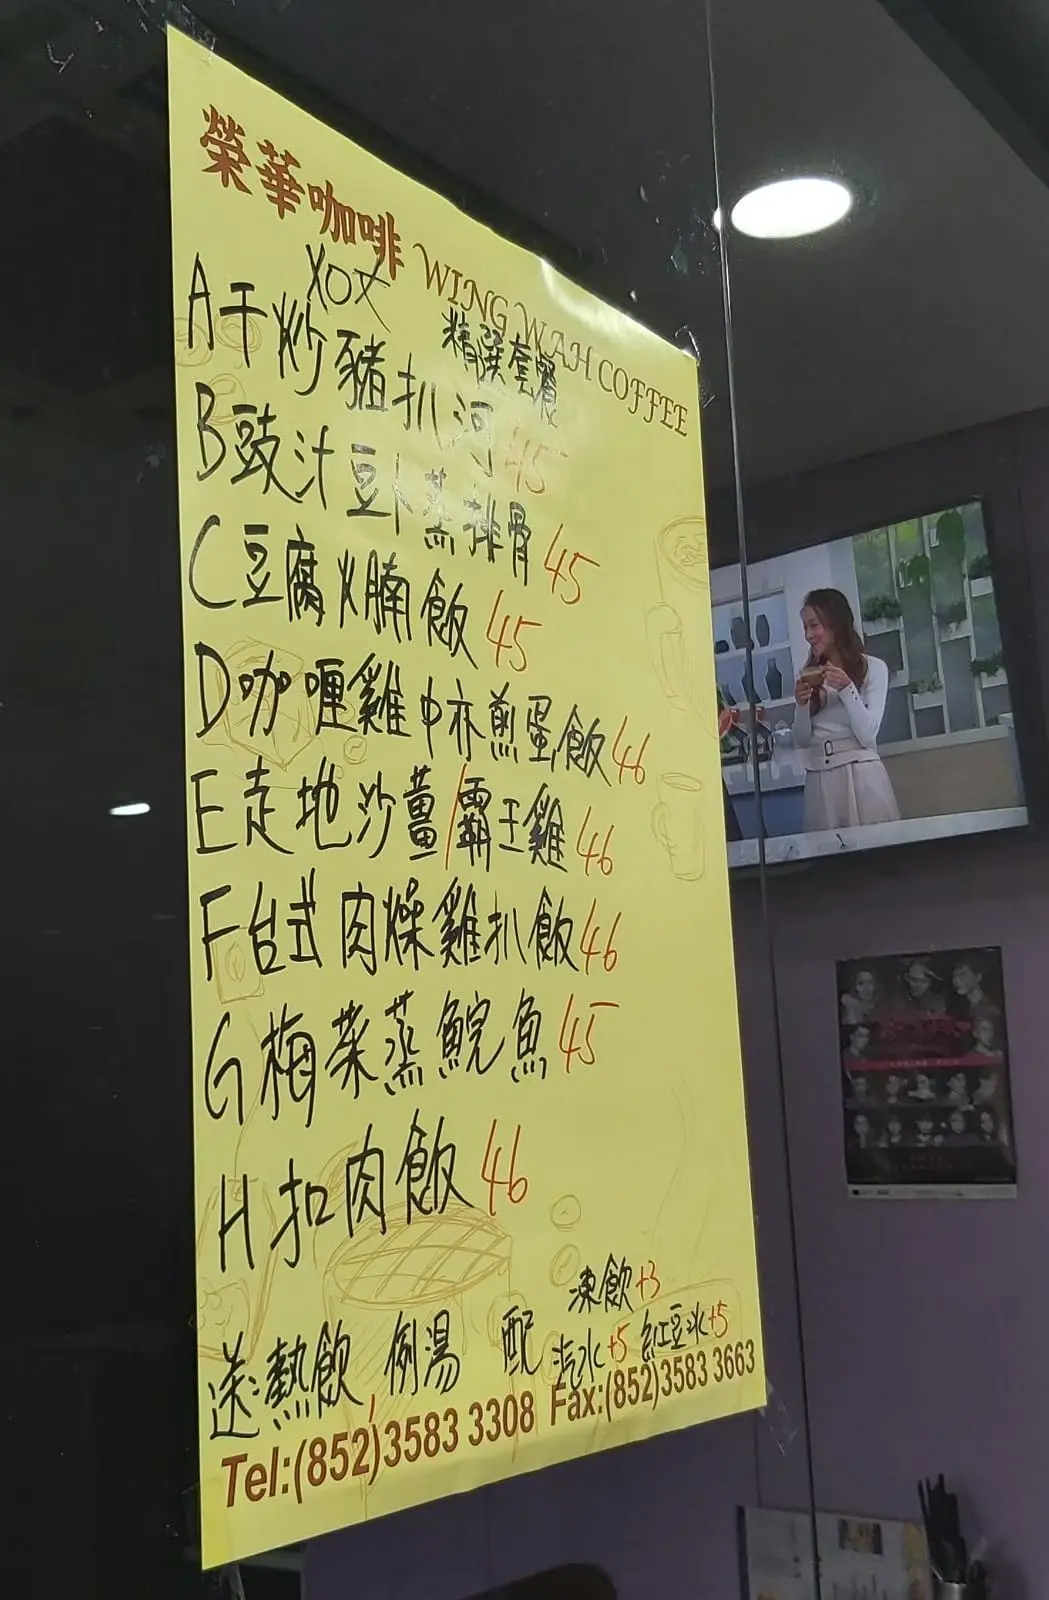 榮華咖啡 WING WAH COFFEE
精選套餐
A 干炒豬扒河 45
B 豉汁豆卜蒸排骨 45
C 豆腐火腩飯 45
D 咖喱雞中亦煎蛋飯 46
E 走地沙薑/霸王雞 46
F 台式肉燥雞扒飯 46
G 梅菜蒸鯇魚 45
H 扣肉飯 46
送:熱飲, 例湯 配 凍飲+3
汽水+5 紅豆冰+5
Tel:(852)3583 3308 Fax:(852)3583 3663